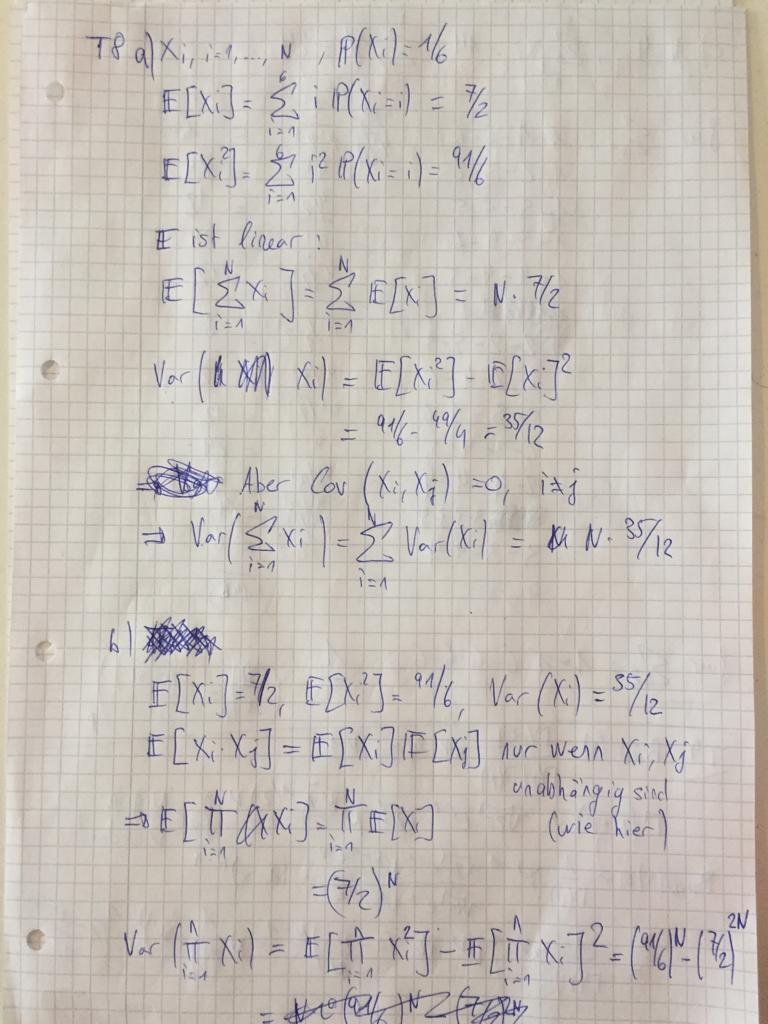 T8 a) Xi, i=1,..., N , ℙ(Xi)=1/6
𝔼[Xi] = ∑_{i=1}^{6} i ℙ(Xi=i) = 7/2
𝔼[Xi²] = ∑_{i=1}^{6} i² ℙ(Xi=i) = 91/6
𝔼 ist linear:
𝔼[∑_{i=1}^{N} Xi] = ∑_{i=1}^{N} 𝔼[Xi] = N · 7/2
Var(Xi) = 𝔼[Xi²] - 𝔼[Xi]²
= 91/6 - 49/4 = 35/12
Aber Cov (Xi, Xj) = 0, i≠j
⇒ Var(∑_{i=1}^{N} Xi) = ∑_{i=1}^{N} Var(Xi) = N · 35/12
b)
𝔼[Xi] = 7/2, 𝔼[Xi²] = 91/6, Var(Xi) = 35/12
𝔼[Xi·Xj] = 𝔼[Xi] 𝔼[Xj] nur wenn Xi, Xj
unabhängig sind
(wie hier)
⇒ 𝔼[∏_{i=1}^{N} Xi] = ∏_{i=1}^{N} 𝔼[Xi]
= (7/2)^N
Var(∏_{i=1}^{n} Xi) = 𝔼[∏_{i=1}^{n} Xi²] - 𝔼[∏_{i=1}^{n} Xi]² = (91/6)^N - (7/2)^{2N}